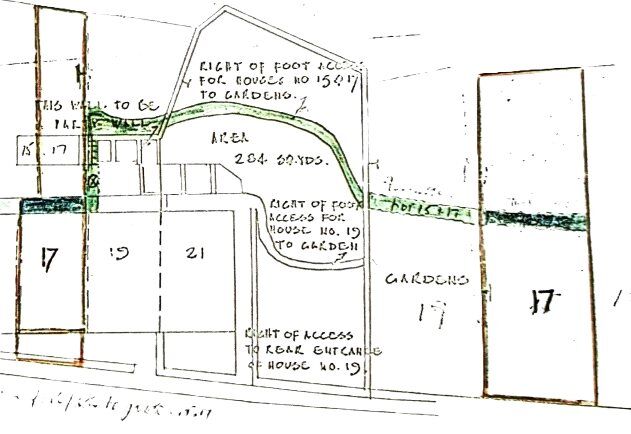 RIGHT OF FOOT ACCESS
FOR HOUSES NO 15 & 17
TO GARDENS.
THIS WALL TO BE
A PARTY WALL
AREA
284 SQ.YDS.
15
17
RIGHT OF FOOT
ACCESS FOR
HOUSE NO. 19
TO GARDEN
For 15 + 17
17
19
21
GARDENS
19
17
RIGHT OF ACCESS
TO REAR ENTRANCE
OF HOUSE NO. 19.